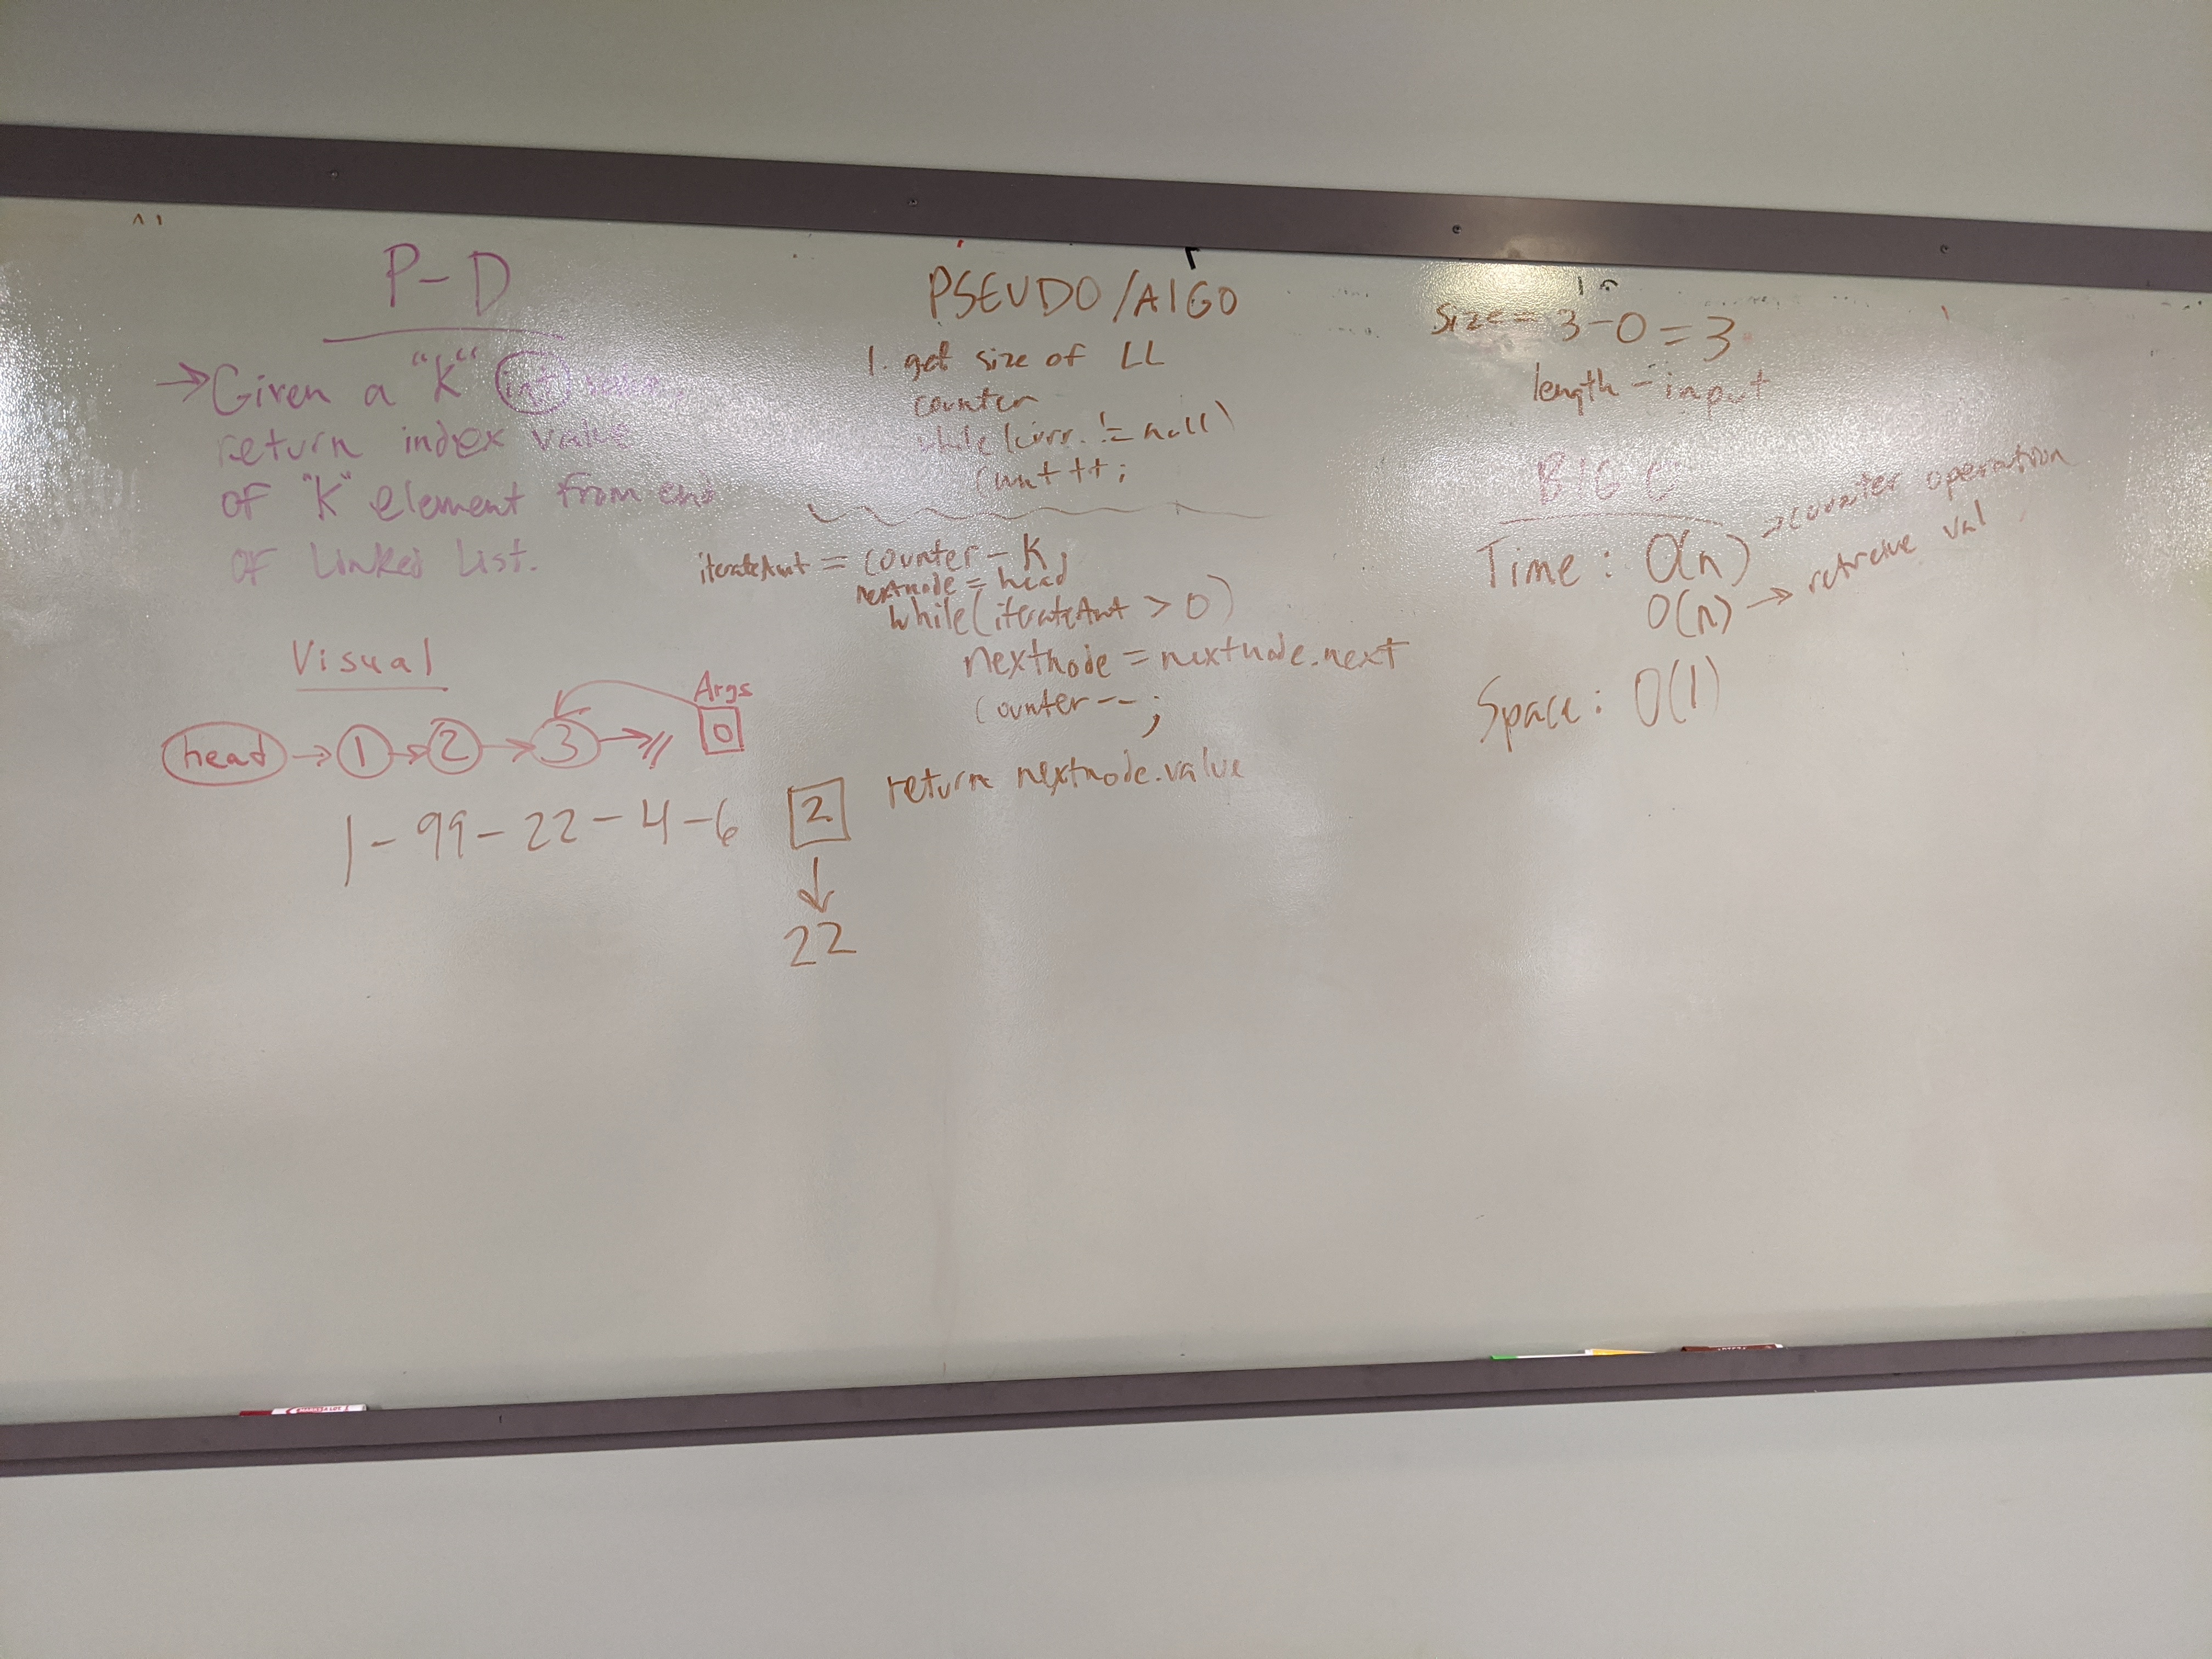 P-D
→ Given a "K" int
return index value
of "K" element from end
of Linked List.
Visual
Args
head → 1 → 2 → 3 → // 0
1 - 99 - 22 - 4 - 6 2
↓
22
PSEUDO/AlGO
1. get size of LL
counter
while (curr. != null)
count ++;
iterateAmt = counter - K;
nextnode = head
while(iterateAmt > 0)
nextnode = nextnode.next
counter--;
return nextnode.value
Size = 3 - 0 = 3
length - input
BIG O
Time: O(n) → counter operation
O(n) → retreive val
Space: O(1)